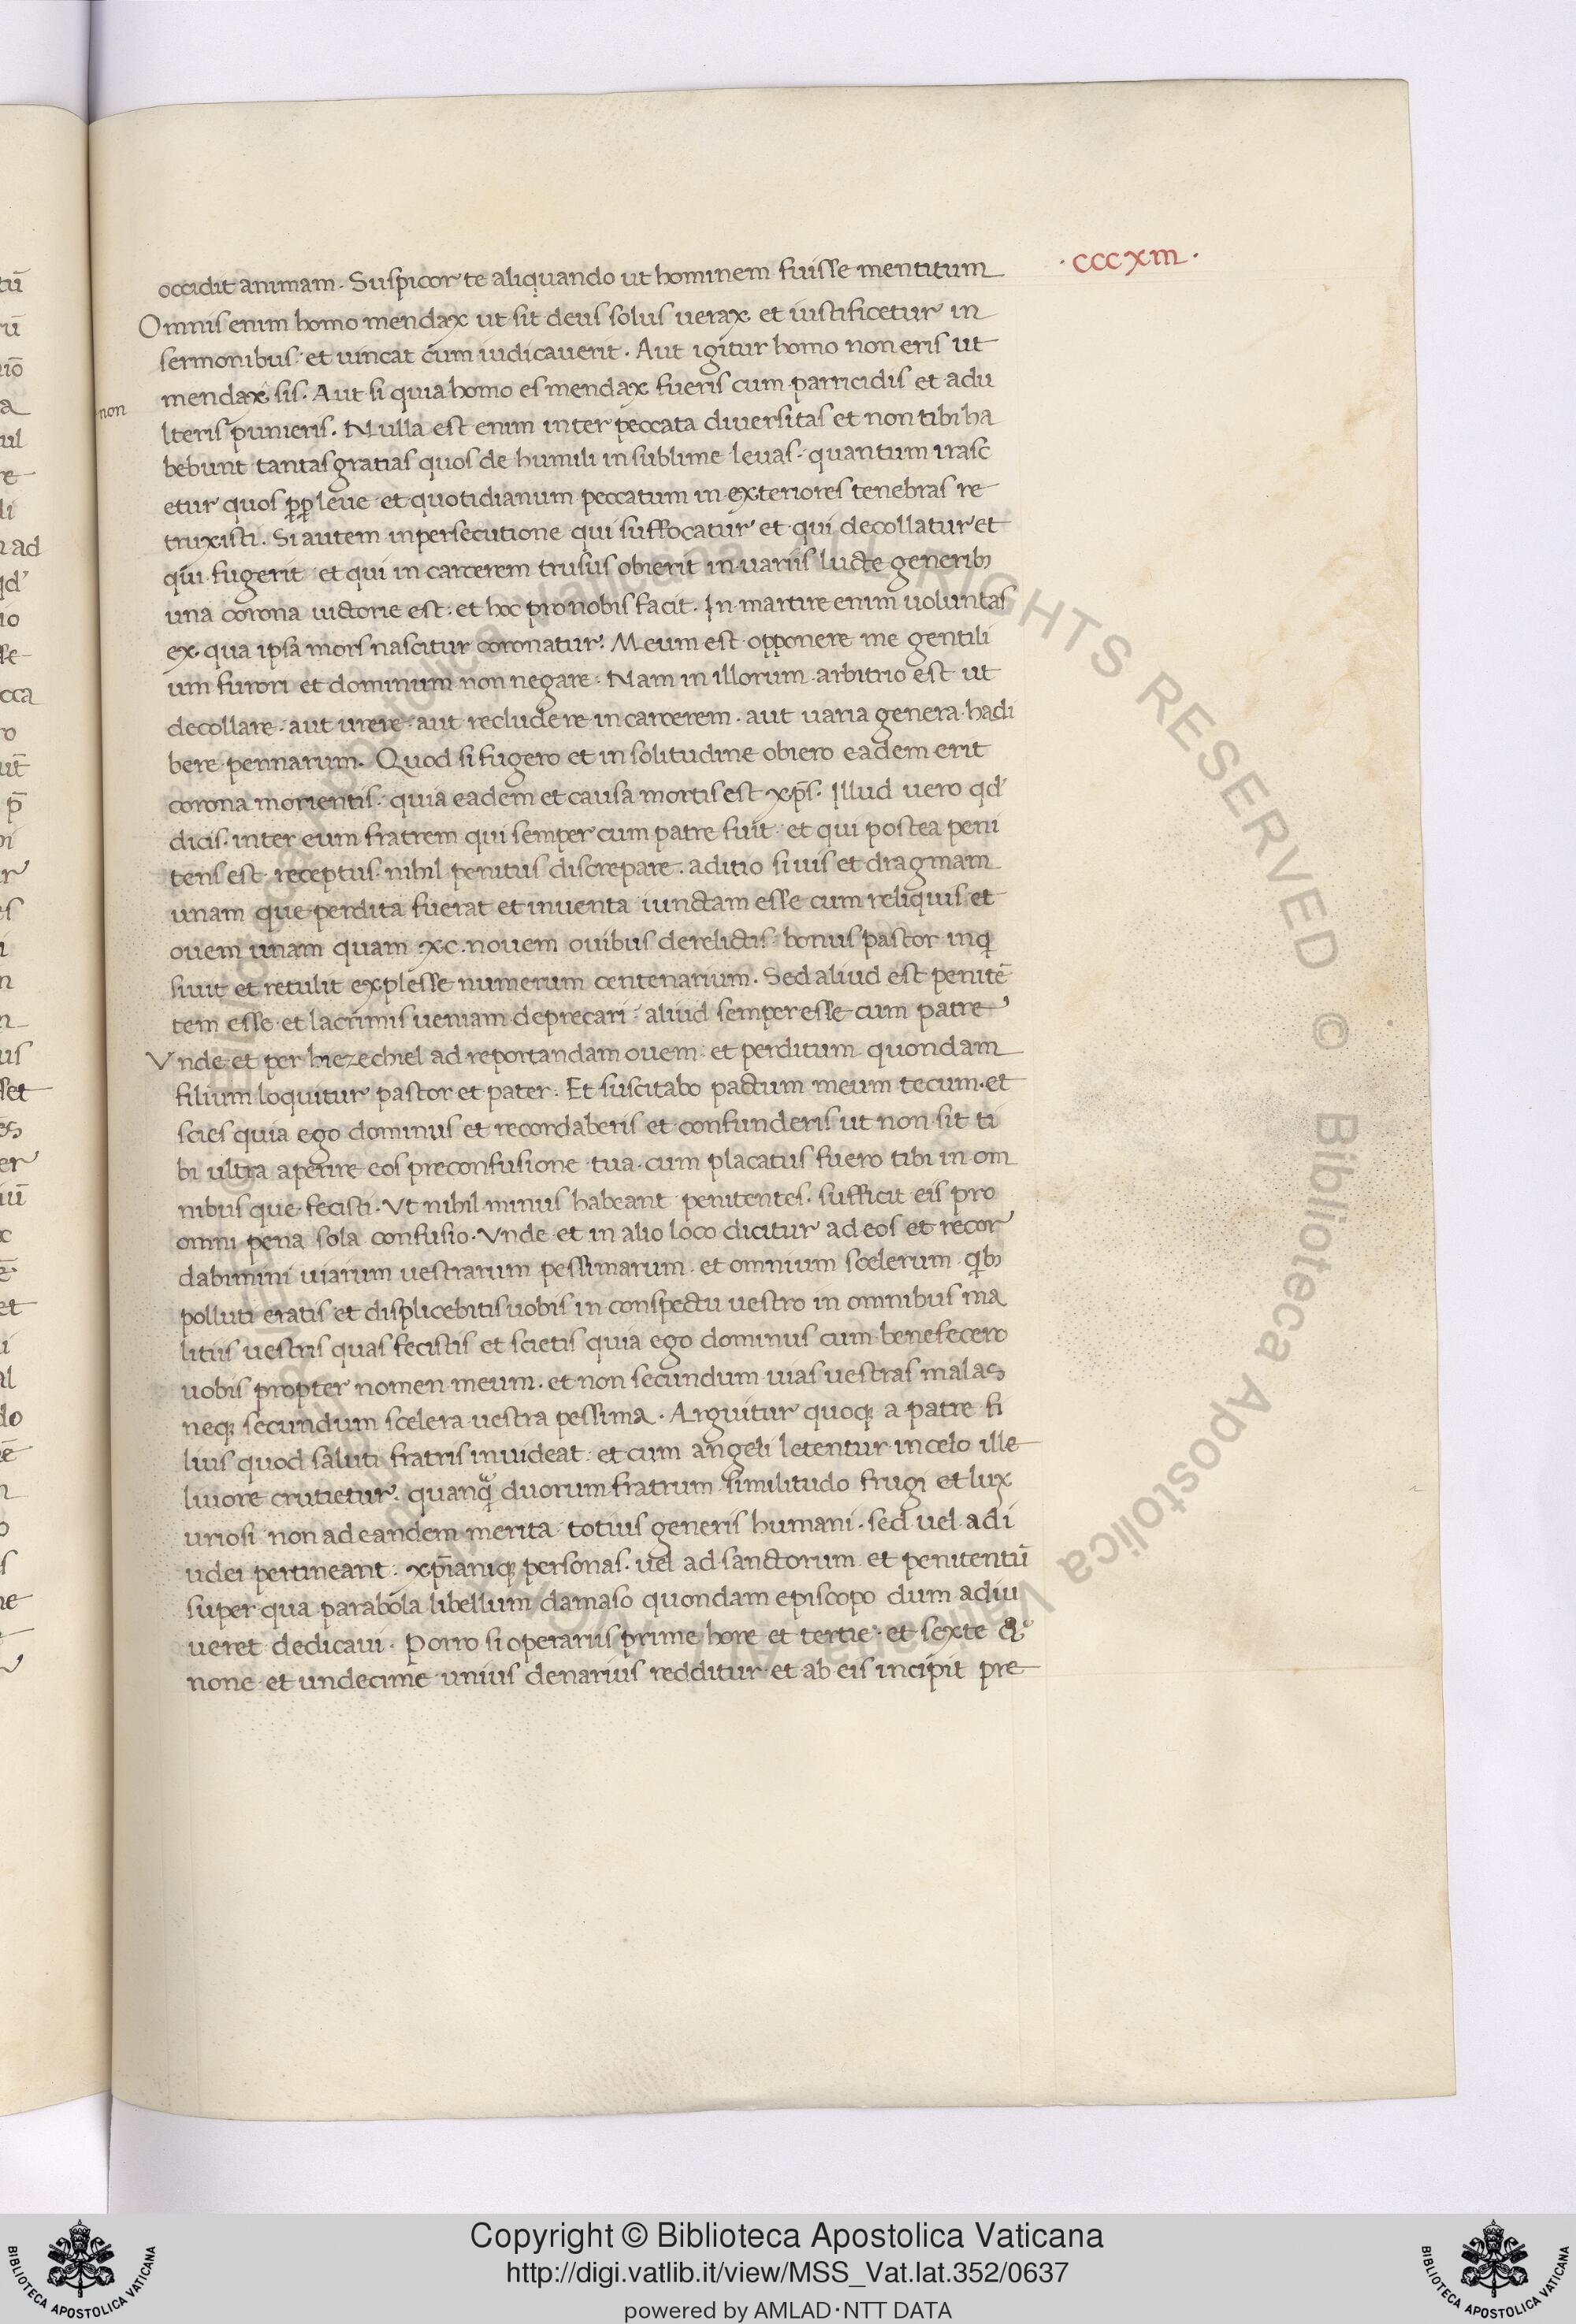 ·CCCXIII·
occidit animam. Suspicor te aliquando ut hominem fuisse mentitum
Omnis enim homo mendax ut sit deus solus uerax et iustificetur in
sermonibus et uincat cum iudicauerit. Aut igitur homo non eris ut
mendax sis. Aut si quia homo es mendax fueris cum parricidis et adu
non
lteris punieris. Nulla est enim inter peccata diuersitas et non tibi ha
bebunt tantas gratias quos de humili in sublime leuas. quantum irasc
etur quos pp leue et quotidianum peccatum in exteriores tenebras re
truxisti. Si autem in persecutione qui suffocatur et qui decollatur et
qui fugerit et qui in carcerem trusus obierit in uariis lucte generib;
una corona uictorie est. et hoc pro nobis facit. In martire enim uoluntas
ex qua ipsa mors nascitur coronatur. Meum est opponere me gentili
um furori et dominum non negare. Nam in illorum arbitrio est ut
decollare. aut urere. aut recludere in carcerem. aut uaria genera hadi
bere pennarum. Quod si fugero et in solitudine obiero eadem erit
corona morientis. quia eadem et causa mortis est xp̄s. Illud uero qd
dicis. inter eum fratrem qui semper cum patre fuit et qui postea peni
tens est receptus nihil penitus discrepare. aditio si uis et dragmam
unam que perdita fuerat et inuenta iunctam esse cum reliquis et
ouem unam quam xc.nouem ouibus derelictis bonus pastor inq
siuit et retulit explesse numerum centenarium. Sed aliud est penitē
tem esse et lacrimis ueniam deprecari. aliud semper esse cum patre
Vnde et per hiezechiel ad reportandam ouem et perditum quondam
filium loquitur pastor et pater. Et suscitabo pactum meum tecum.et
scies quia ego dominus et recordaberis et confunderis ut non sit ti
bi ultra aperire eos preconfusione tua.cum placatus fuero tibi in om
nibus que fecisti. Vt nihil minus habeant penitentes. sufficit eis pro
omni pena sola confusio. Vnde et in alio loco dicitur ad eos et recor
dabimini uiarum uestrarum pessimarum et omnium scelerum qib;
polluti eratis et displicebitis uobis in conspectu uestro in omnibus ma
litiis uestris quas fecistis et scietis quia ego dominus cum benefecero
uobis propter nomen meum. et non secundum uias uestras malas
neq; secundum scelera uestra pessima. Arguitur quoq; a patre fi
lius quod saluti fratris inuideat et cum angeli letentur in celo ille
liuore crutietur. quanq̃ duorum fratrum similitudo frugi et lux
uriosi non ad eandem merita totius generis humani. sed uel ad i
udei pertineant xp̄ianiq; personas. uel ad sanctorum et penitentū
super qua parabola libellum damaso quondam episcopo dum adiu
ueret dedicaui. Porro si operariis prime hore et tertie et sexte &
none et undecime unius denarius redditur et ab eis incipit pre
© Biblioteca Apostolica Vaticana ALL RIGHTS RESERVED
Copyright © Biblioteca Apostolica Vaticana
http://digi.vatlib.it/view/MSS_Vat.lat.352/0637
powered by AMLAD·NTT DATA
BIBLIOTECA APOSTOLICA VATICANA
BIBLIOTECA APOSTOLICA VATICANA